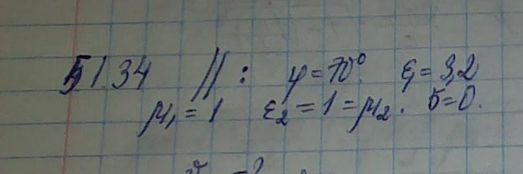 51.34 || : φ = 70° ε₁ = 3,2
μ₁ = 1 ε₂ = 1 = μ₂. σ = 0.